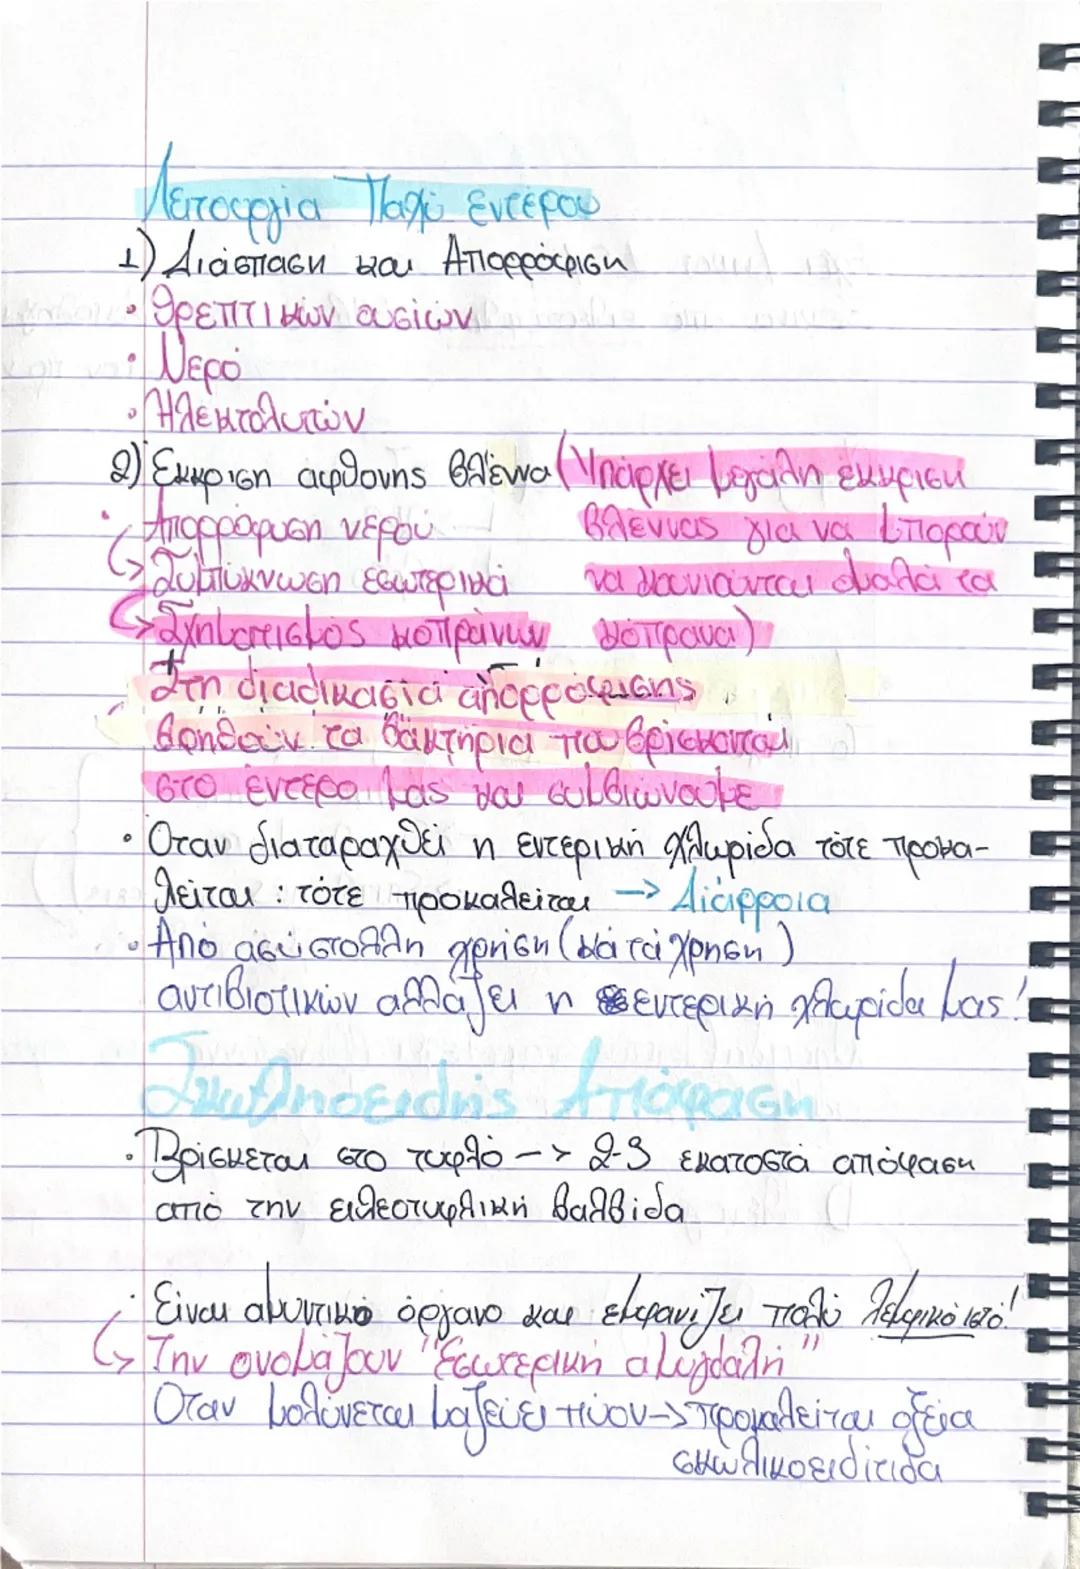 Λειτουργία Παχύ εντέρου
1) Διάσπαση και Απορρόφηση
• Θρεπτικών ουσιών
• Νερό
• Ηλεκτολυτών
2) Έκκριση αφθονης βλέννα (Υπάρχει μεγάλη έκκριση
• Απορρόφηση νερού βλέννας για να μπορούν
↳ Συμπύκνωση εσωτερικά να κουνιούνται ομαλά τα
↳ Σχηματισμός κοπράνων κόπρανα)
Στη διαδικασία απορρόφησης
βοηθούν τα βακτήρια που βρίσκονται
στο έντερο μας και συμβιώνουμε
• Όταν διαταραχθεί η εντερική χλωρίδα τότε προκα-
λείται : τότε προκαλείται -> Διάρροια
• Από ασύστολλη χρήση (κατάχρηση)
αντιβιοτικών αλλάζει η εντερική χλωρίδα μας!
Σκωληοειδής Απόφαση
• Βρίσκεται στο τυφλό -> 2-3 εκατοστά απόφαση
από την ειλεοτυφλική βαλβίδα
• Είναι αμυντικό όργανο και εμφανίζει πολύ λεμφικό ιστό!
↳ Την ονομάζουν "Εσωτερική αμυγδαλή"
Όταν μολύνεται μαζεύει πύον -> προκαλείται οξεία
σκωλικοειδίτιδα